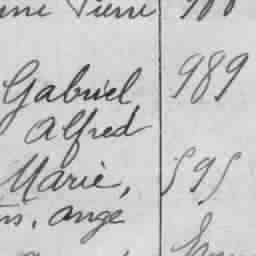 Pierre
Gabriel, 989
Alfred
Marie, 595
ange